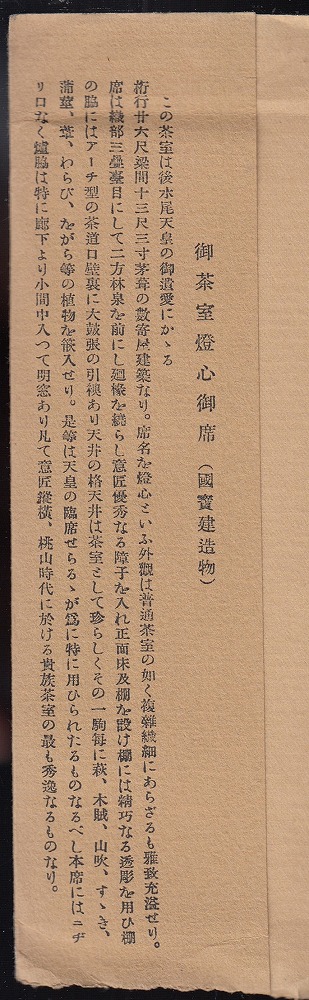 御茶室燈心御席（國寶建造物）
この茶室は後水尾天皇の御遺愛にかゝる
桁行廿六尺梁間十三尺三寸茅葺の數寄屋建築なり。席名を燈心といふ外觀は普通茶室の如く複雜纎細にあらざるも雅致充溢せり。
席は織部三疊臺目にして二方林泉を前にし廻椽を繞らし意匠優秀なる障子を入れ正面床及棚を設け棚には精巧なる透彫を用ひ棚
の脇にはアーチ型の茶道口壁裏に太鼓張の引襖あり天井の格天井は茶室として珍らしくその一駒每に萩、木賊、山吹、すゝき、
蒲葦、葦、わらび、たがら等の植物を篏入せり。是等は天皇の臨席せらるゝが爲に特に用ひられたるものなるべし本席にはニヂ
リ口なく爐脇は特に廊下より小間中入つて明窓あり凡て意匠縱橫、桃山時代に於ける貴族茶室の最も秀逸なるものなり。